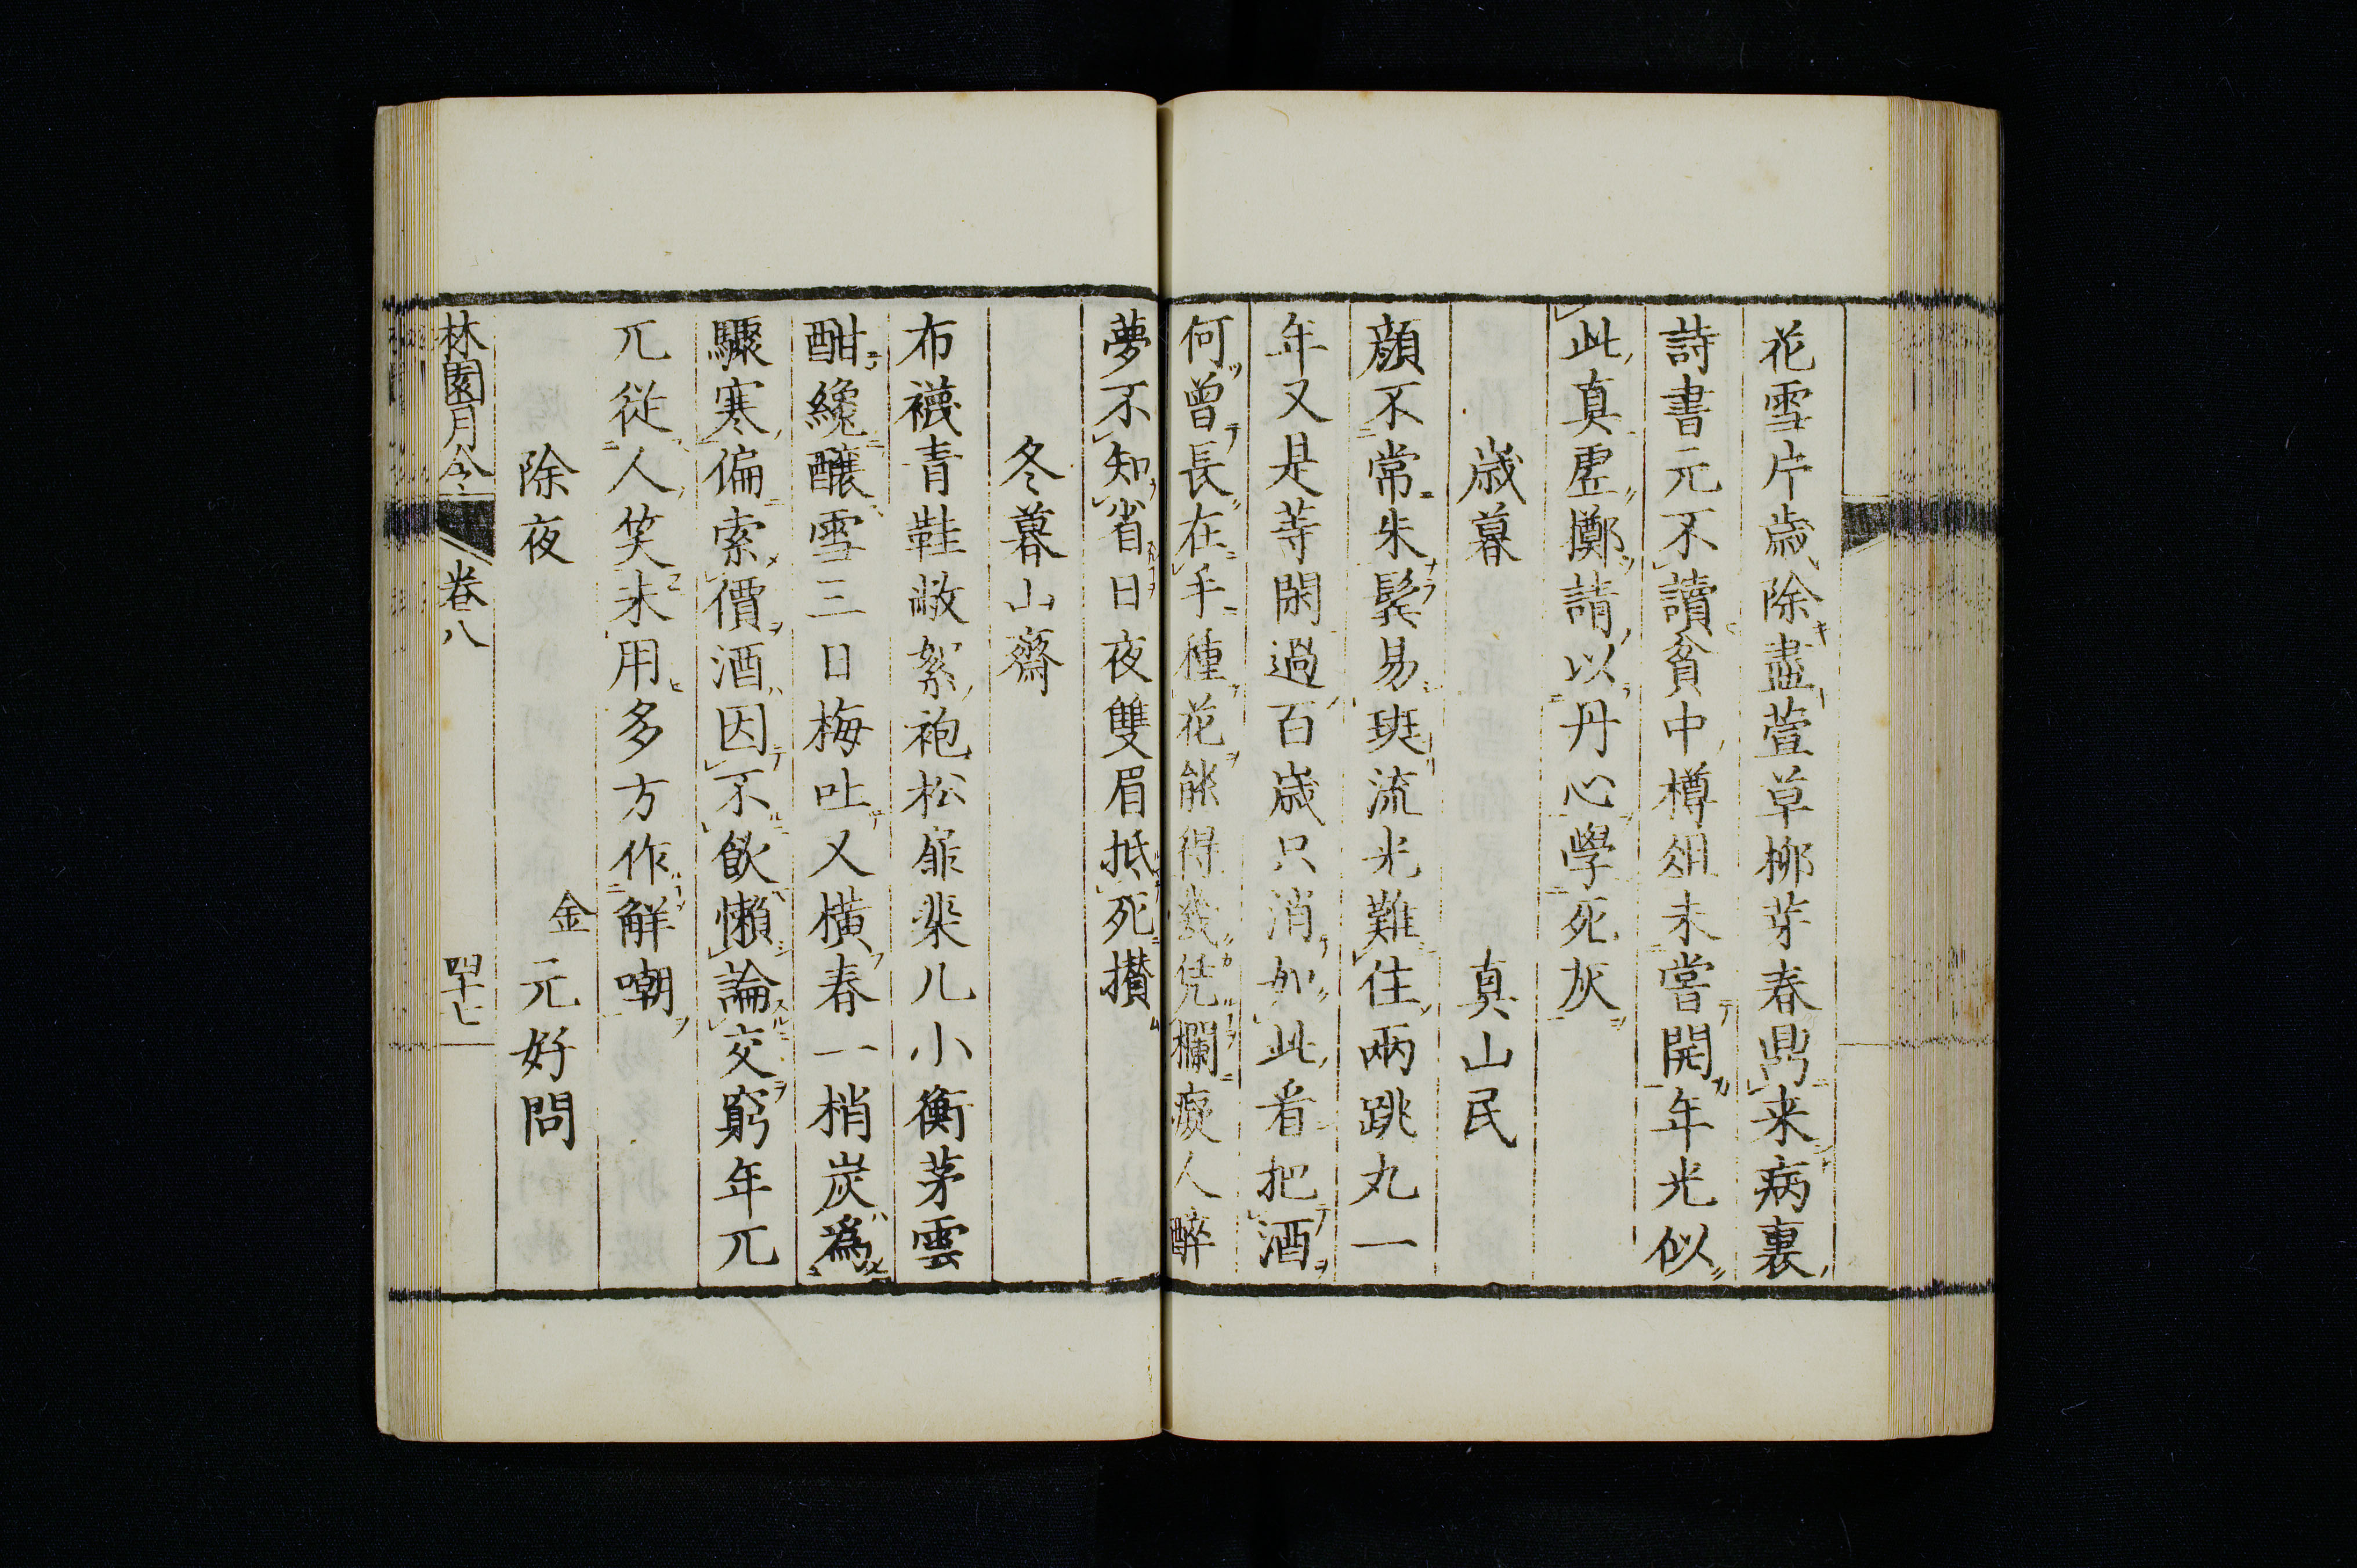 花雪片歳除盡萱草栁芽春鼎来病裏
詩書元不讀貧中樽俎未甞開年光似
此真虚擲請以丹心學死灰
歳暮 真山民
顔不常朱鬂易斑流光難住兩跳丸一
年又是等閑過百歳只消如此看把酒
何曽長在手種花能得幾凭欄癡人醉
夢不知省日夜雙眉抵死攅
冬暮山齋
布襪青鞋敝絮袍松扉棐几小衡茅雲
酣纔釀雪三日梅吐又橫春一梢炭爲
驟寒偏索價酒因不飲懶論交窮年兀
兀從人笑未用多方作觧嘲
除夜 金 元好問
林園月令 卷八 四十七